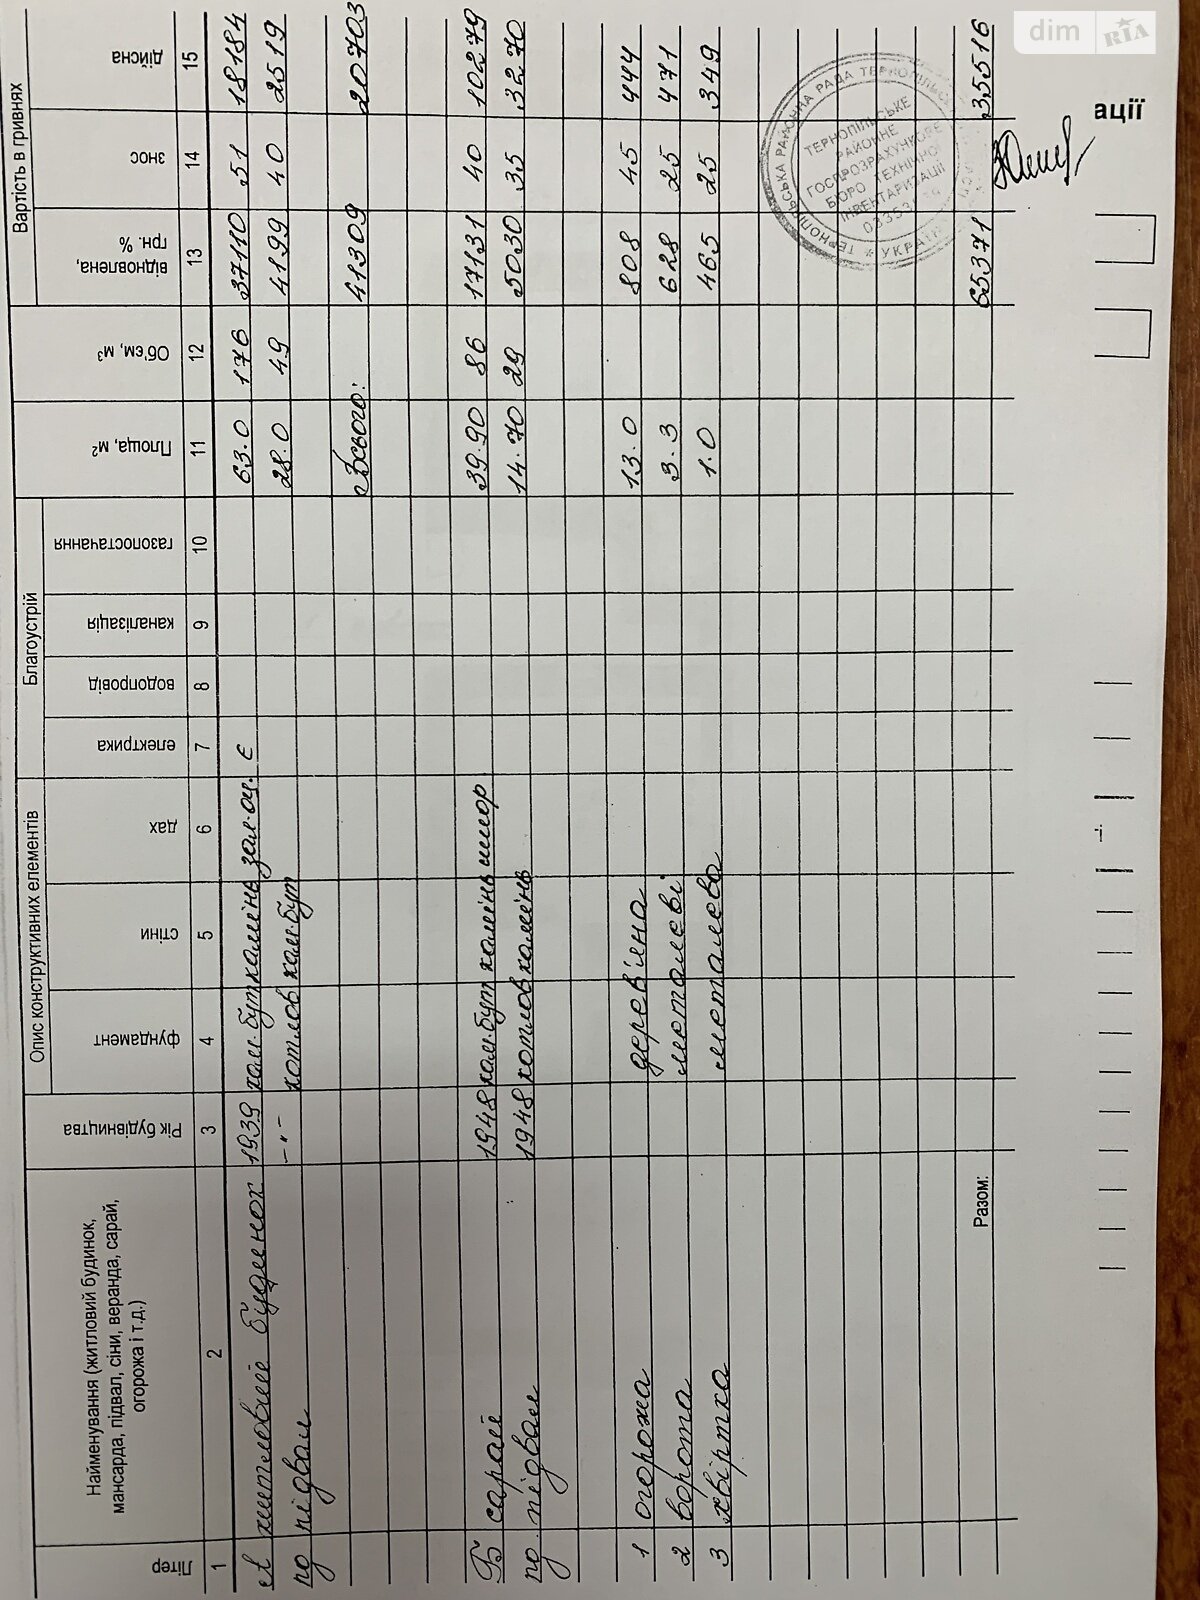 Літер
Найменування (житловий будинок,
мансарда, підвал, сіни, веранда, сарай,
огорожа і т.д.)
Рік будівництва
Опис конструктивних елементів
фундамент
стіни
дах
Благоустрій
електрика
водопровід
каналізація
газопостачання
Площа, м²
Об'єм, м³
Вартість в гривнях
відновлена,
грн. %
знос
дійсна
1 2 3 4 5 6 7 8 9 10 11 12 13 14 15
А житловий будинок 1939 кам.бут камінь є 63.0 176 37110 51 18184
пд підвал -"- котлов кам.бут 28.0 49 4199 40 2519
Всього: 41309 20703
Б сарай 1948 кам.бут камінь шифер 39.90 86 17131 40 10279
пд підвал 1948 котлов камінь 14.70 29 5030 35 3270
1 огорожа дерев'яна 13.0 808 45 444
2 ворота металеві 3.3 628 25 471
3 хвіртка металева 1.0 465 25 349
Разом: 65371 35516
ТЕРНОПІЛЬСЬКА РАЙОННА РАДА
* УКРАЇНА
ТЕРНОПІЛЬСЬКЕ
РАЙОННЕ
ГОСПРОЗРАХУНКОВЕ
БЮРО ТЕХНІЧНОЇ
ІНВЕНТАРИЗАЦІЇ
ації
dim RIA